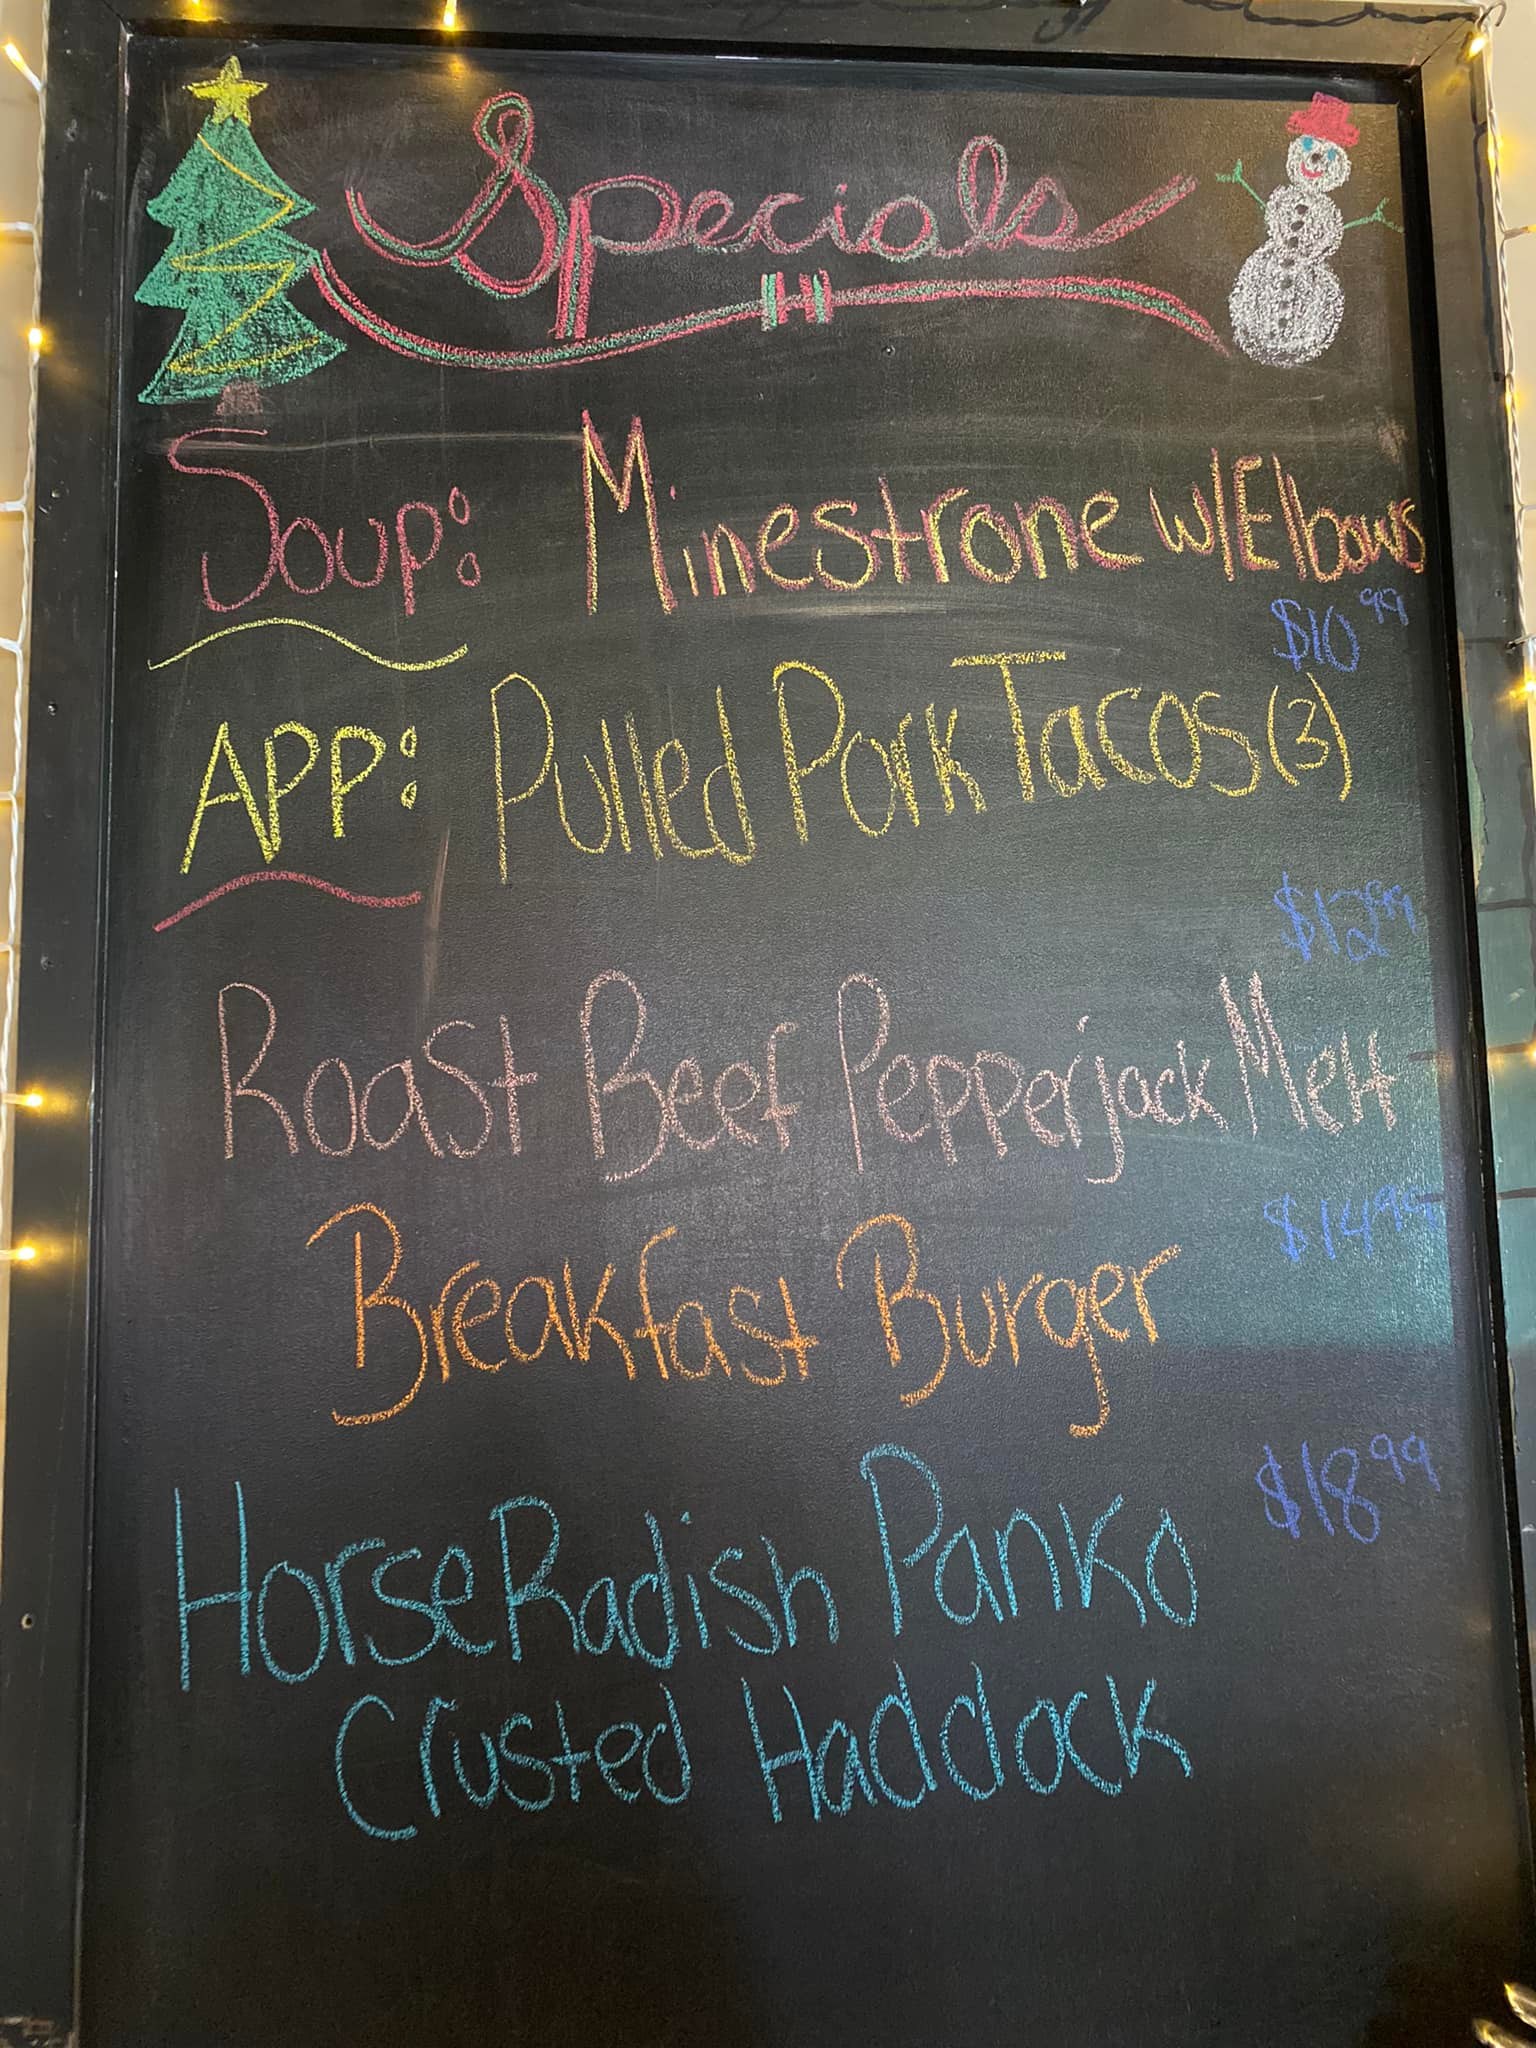 Specials
Soup: Minestrone w/Elbows
$10.99
APP: Pulled Pork Tacos (3)
$12.99
Roast Beef Pepperjack Melt
$14.99
Breakfast Burger
$18.99
HorseRadish Panko
Crusted Haddock